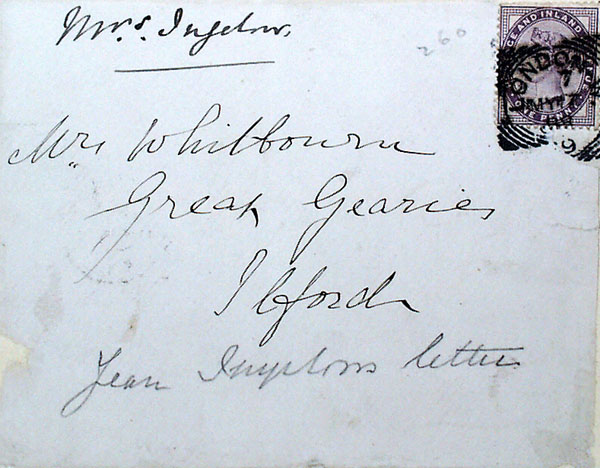 Mrs. Ingelow.
260
POSTAGE AND INLAND REVENUE
ONE PENNY
LONDON
7
MY 7
9
Mrs Whitbourn
Great Gearies
Ilford
Jean Ingelows letter